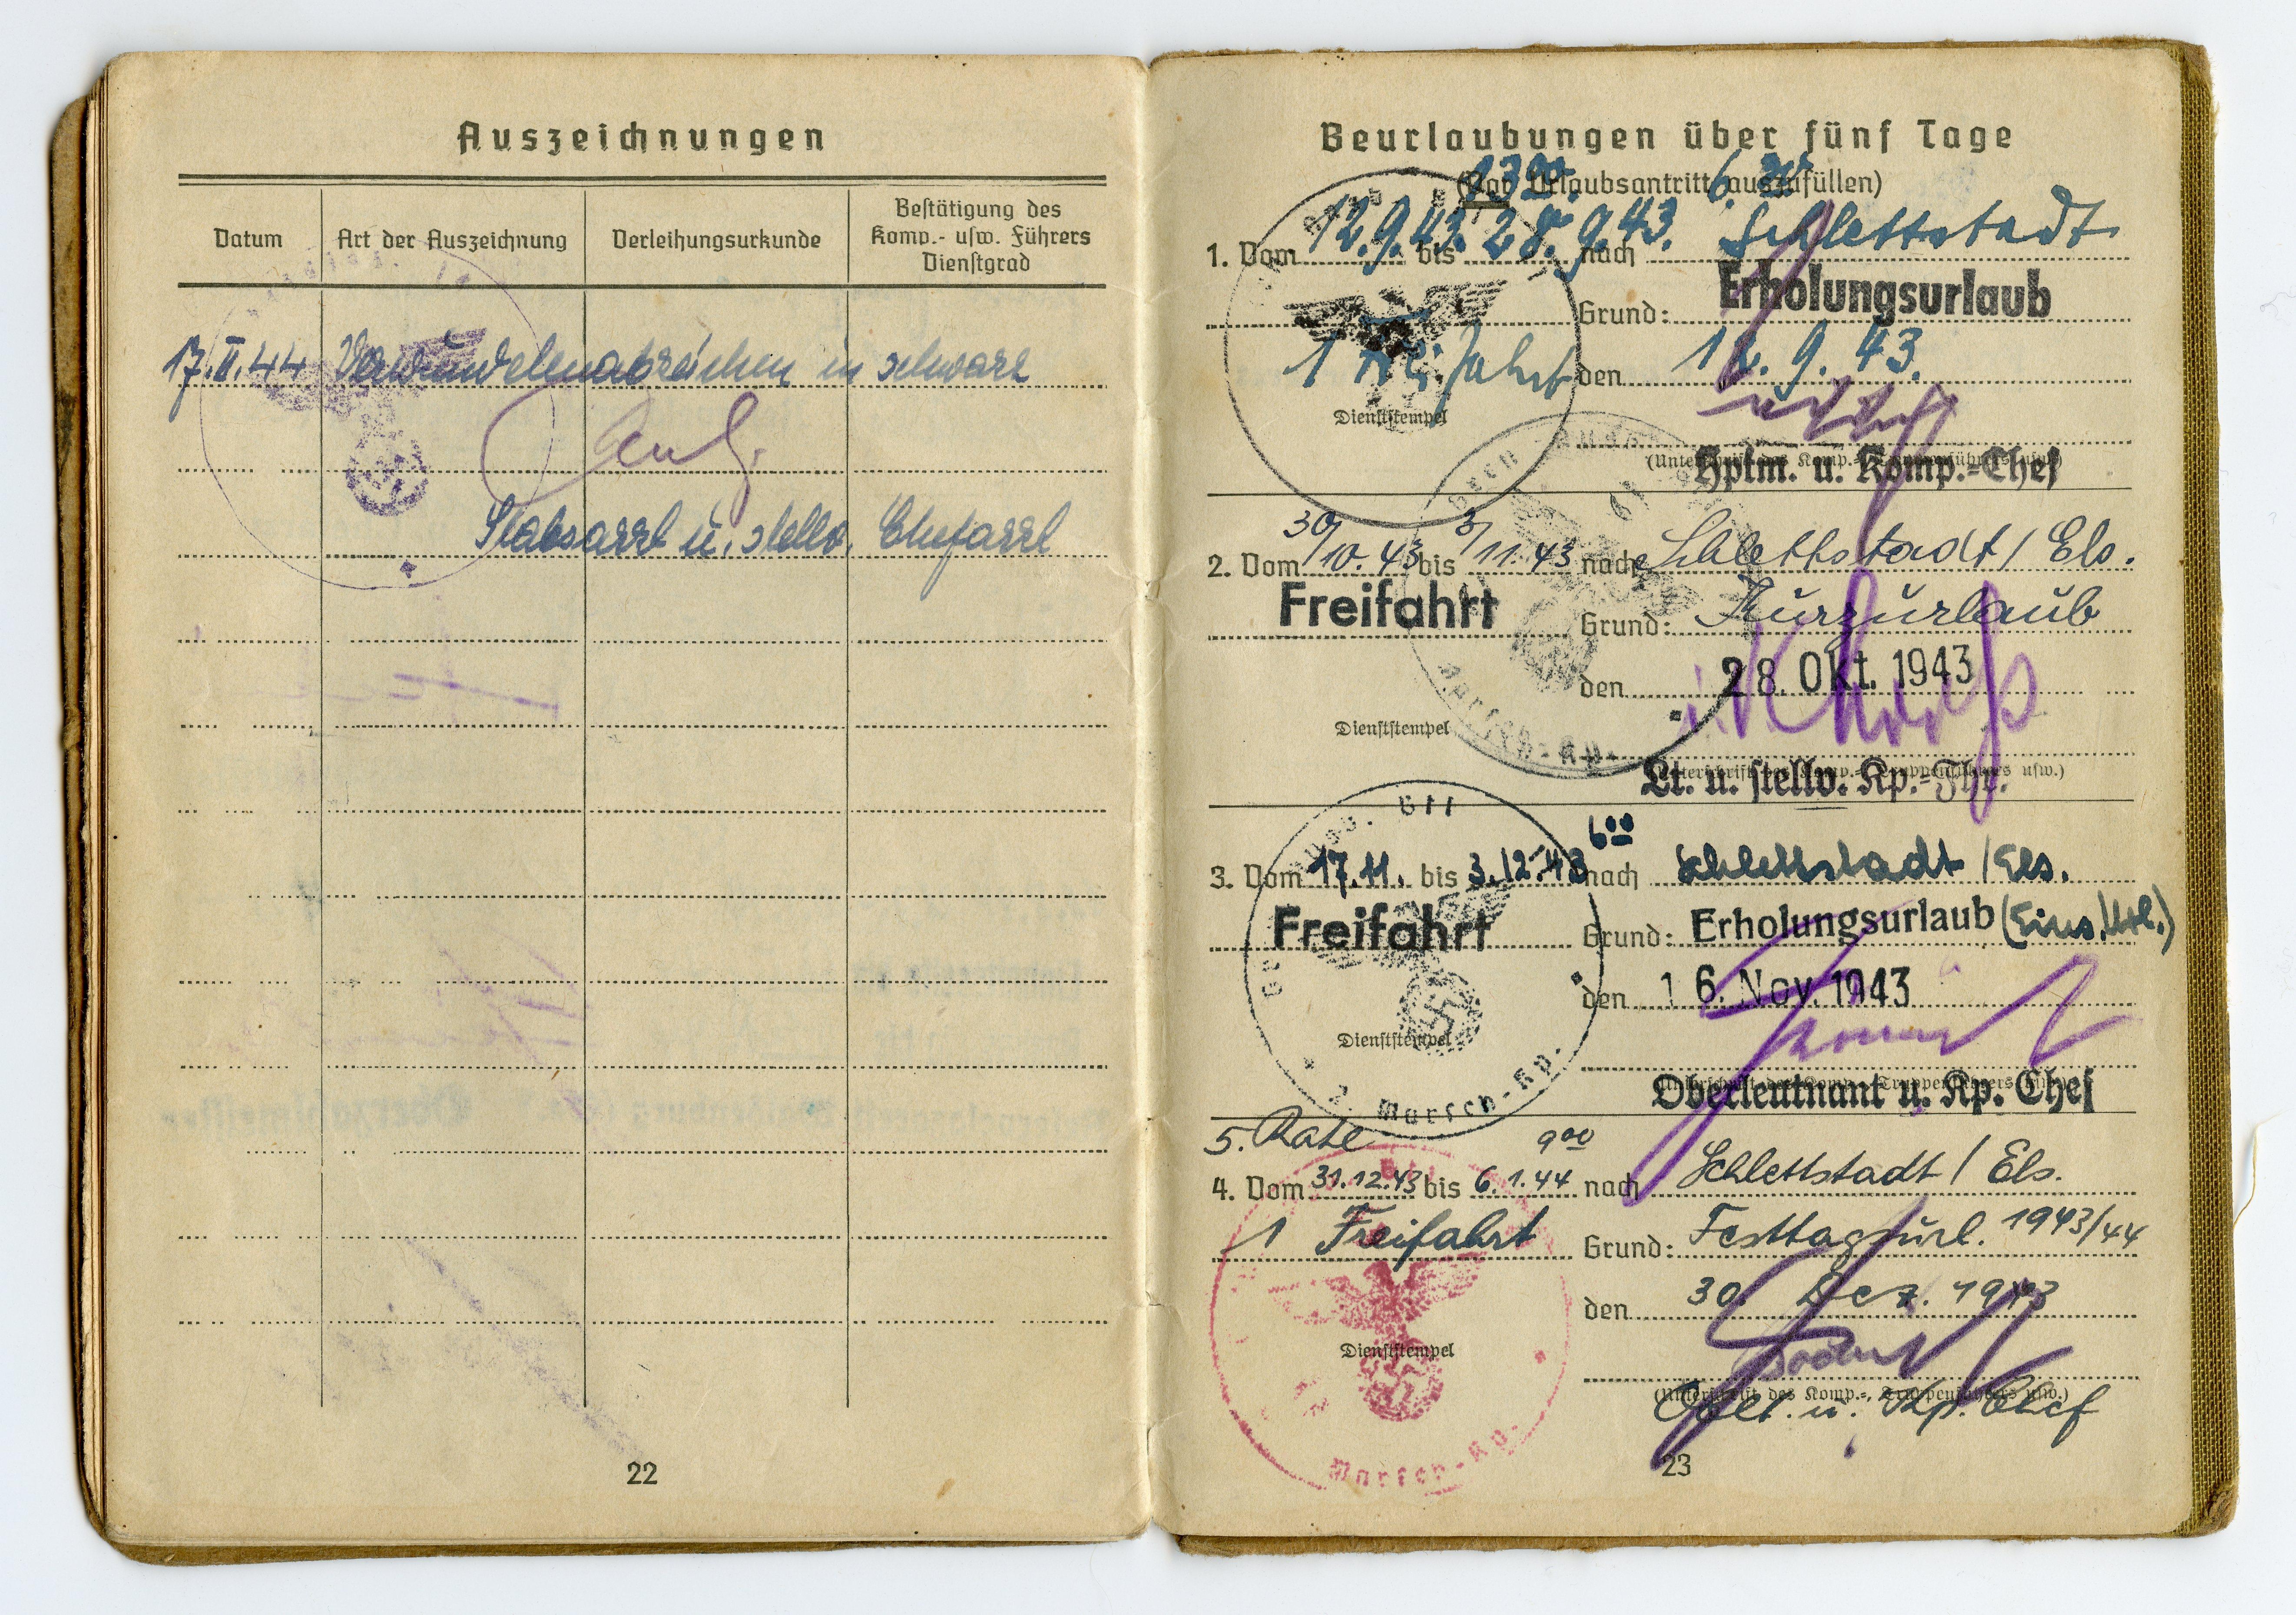 Auszeichnungen
Datum
Art der Auszeichnung
Verleihungsurkunde
Bestätigung des
Komp.- usw. Führers
Dienstgrad
17.II.44 Verwundetenabzeichen in schwarz
Stabsarzt u. stellv. Chefarzt
22
Beurlaubungen über fünf Tage
(Vor Urlaubsantritt auszufüllen)
1. Vom 12.9.43. bis 28.9.43. nach Schlettstadt
Grund: Erholungsurlaub
1 Freifahrt den 11.9.43.
Dienststempel
(Unterschrift des Komp.-, Truppenführers usw.)
Hptm. u. Komp.-Chef
2. Vom 30/10.43 bis 3/11.43 nach Schlettstadt / Els.
Freifahrt Grund: Kurzurlaub
den 28. Okt. 1943
Dienststempel
Marsch-Kp.
(Unterschrift des Komp.-, Truppenführers usw.)
Lt. u. stellv. Kp.-Fhr.
6⁰⁰
3. Vom 17.11. bis 3.12.43 nach Schlettstadt / Els.
Freifahrt Grund: Erholungsurlaub (Eins. Url.)
den 16. Nov. 1943
Dienststempel
2. Marsch-Kp.
(Unterschrift des Komp.-, Truppenführers usw.)
Oberleutnant u. Kp. Chef
5. Rate 9⁰⁰
4. Vom 31.12.43 bis 6.1.44 nach Schlettstadt / Els.
1 Freifahrt Grund: Festtagsurl. 1943/44
den 30. Dez. 1943
Dienststempel
Marsch-Kp.
(Unterschrift des Komp.-, Truppenführers usw.)
Oblt. u. Kp. Chef
23